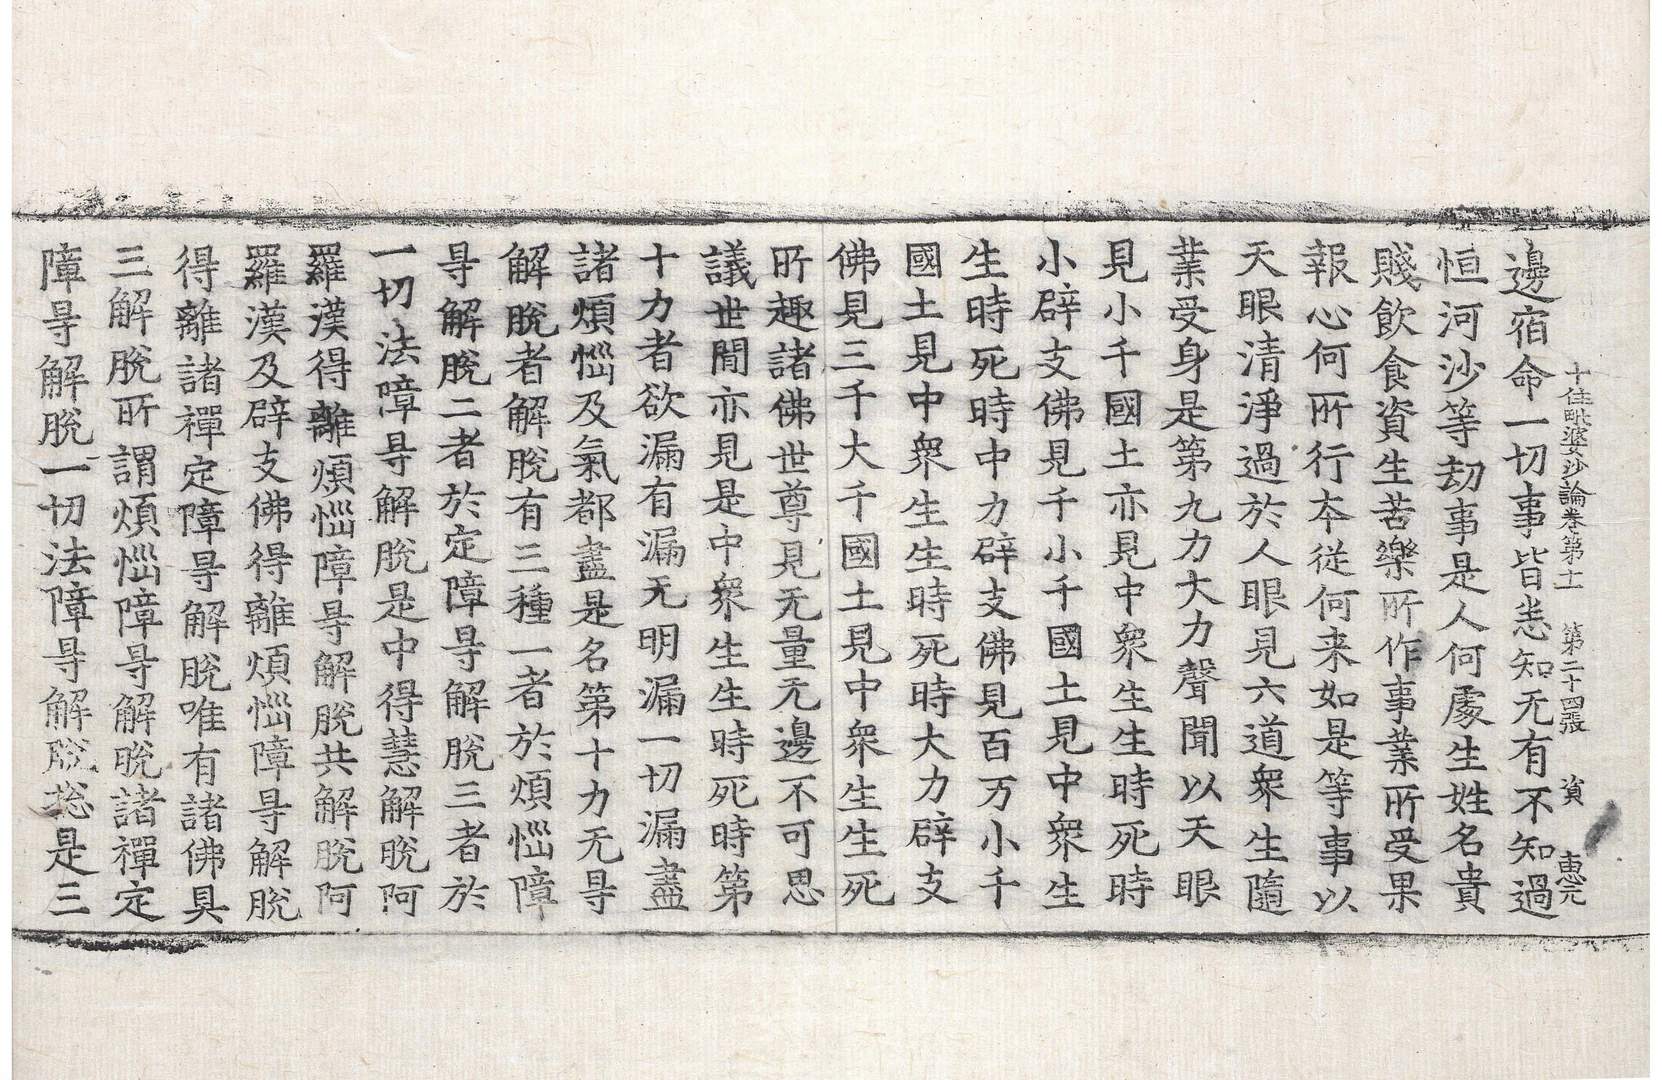 十住毗婆沙論卷第十一 第二十四張 資 惠元
邊宿命一切事皆悉知无有不知過
恒河沙等劫事是人何處生姓名貴
賤飲食資生苦樂所作事業所受果
報心何所行夲從何来如是等事以
天眼清淨過於人眼見六道衆生隨
業受身是第九力大力聲聞以天眼
見小千國土亦見中衆生生時死時
小辟支佛見千小千國土見中衆生
生時死時中力辟支佛見百万小千
國土見中衆生生時死時大力辟支
佛見三千大千國土見中衆生生死
所趣諸佛世尊見无量无邊不可思
議世間亦見是中衆生生時死時第
十力者欲漏有漏无明漏一切漏盡
諸煩惱及氣都盡是名第十力无㝵
解脫者解脫有三種一者於煩惱障
㝵解脫二者於定障㝵解脫三者於
一切法障㝵解脫是中得慧解脫阿
羅漢得離煩惱障㝵解脫共解脫阿
羅漢及辟支佛得離煩惱障㝵解脫
得離諸禪定障㝵解脫唯有諸佛具
三解脫所謂煩惱障㝵解脫諸禪定
障㝵解脫一切法障㝵解脫揔是三